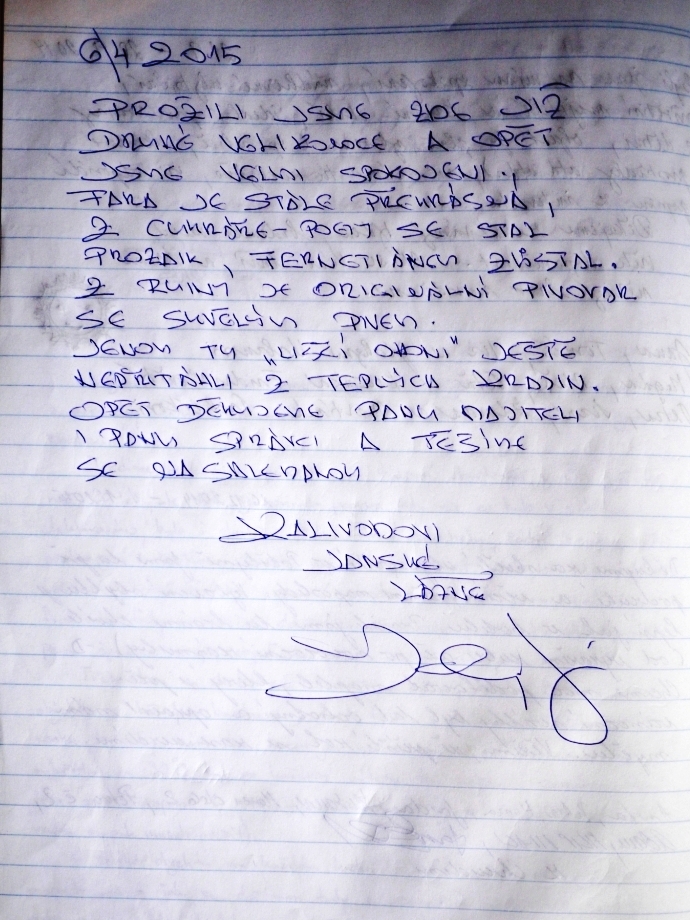 6/4 2015
PROŽILI JSME ZDE JIŽ
DRUHÉ VELIKONOCE A OPĚT
JSME VELMI SPOKOJENI.,
FARA JE STÁLE PŘEKRÁSNÁ,
Z CUKRÁŘE-POETY SE STAL
PROZAIK, FERNETIÁNEM ZŮSTAL.
Z RUINY JE ORIGINÁLNÍ PIVOVAR
SE SKVĚLÝM PIVEM.
JENOM TY „LIZŽÍ OHONI" JEŠTĚ
NEPŘITÁHLI Z TEPLÝCH KRAJIN.
OPĚT DĚKUJEME PANU MAJITELI
I PANU SPRÁVCI A TĚŠÍME
SE NA SHLEDANOU
KALIVODOVI
JANSKÉ
LÁZNĚ